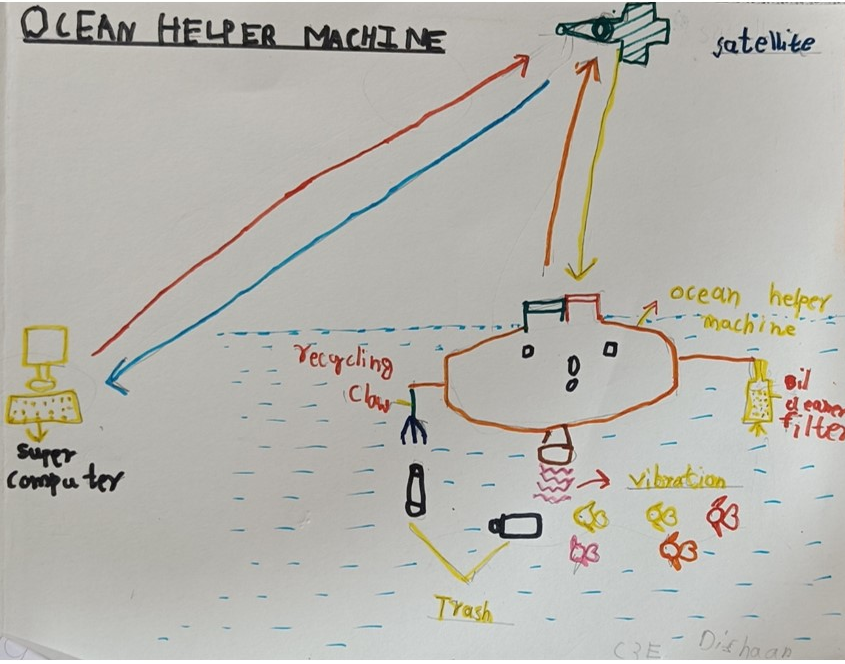 OCEAN HELPER MACHINE
satellite
ocean helper
machine
recycling
claw
oil
cleaner
filter
super
computer
vibration
Trash
C3E Dishaan